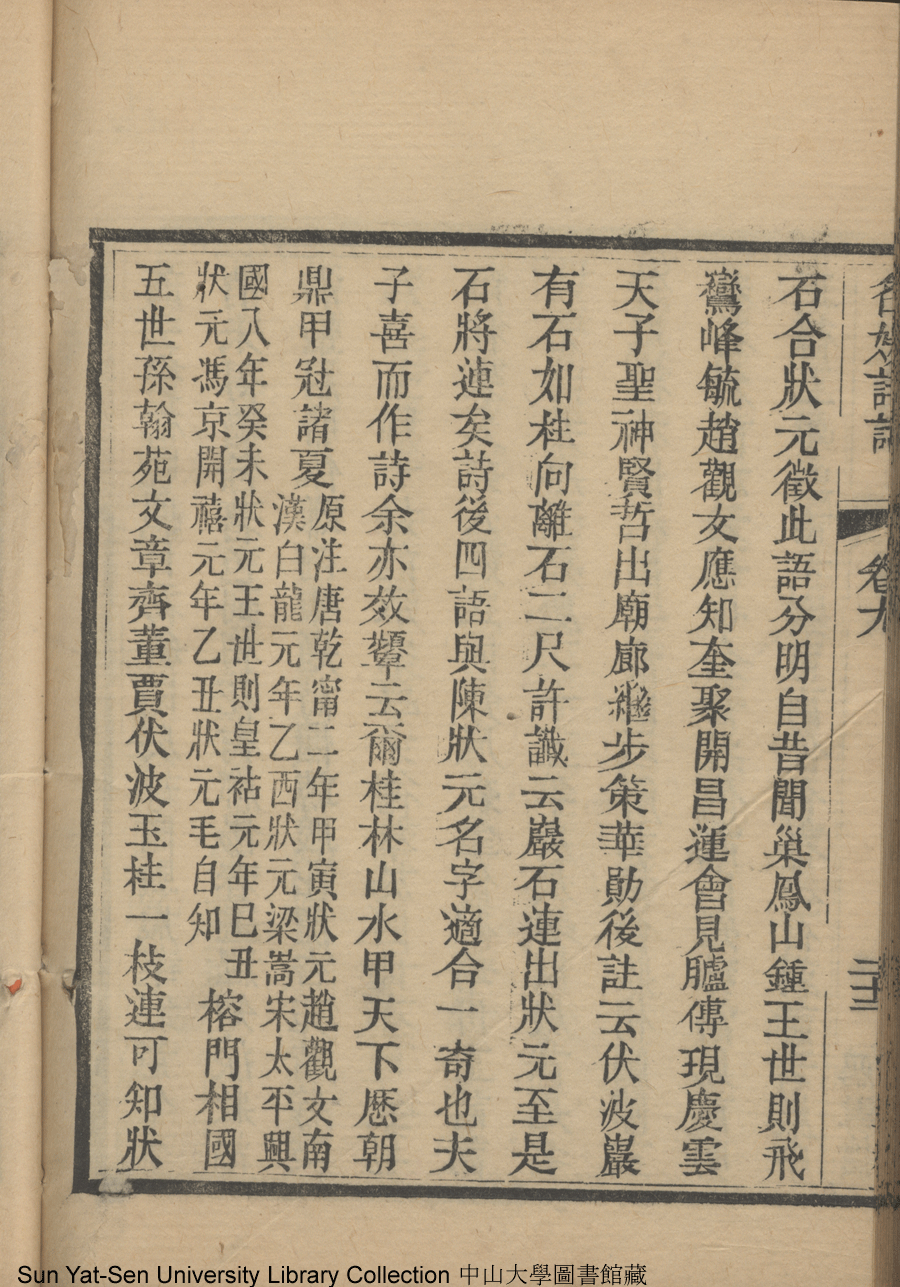 石合狀元徵此語分明自昔聞巢鳳山鍾王世則飛
鸞峰毓趙觀文應知奎聚開昌運會見臚傳現慶雲
天子聖神賢哲出廟廊繼步策華勛後註云伏波巖
有石如柱向離石二尺許讖云巖石連出狀元至是
石將連矣詩後四語與陳狀元名字適合一奇也夫
子喜而作詩余亦效顰云爾桂林山水甲天下歷朝
鼎甲冠諸夏
原注唐乾甯二年甲寅狀元趙觀文南
漢白龍元年乙酉狀元梁嵩宋太平興
國八年癸未狀元王世則皇祜元年巳丑
狀元馮京開禧元年乙丑狀元毛自知
榕門相國
五世孫翰苑文章齊董賈伏波玉柱一枝連可知狀
卷九
二十二
Sun Yat-Sen University Library Collection 中山大學圖書館藏